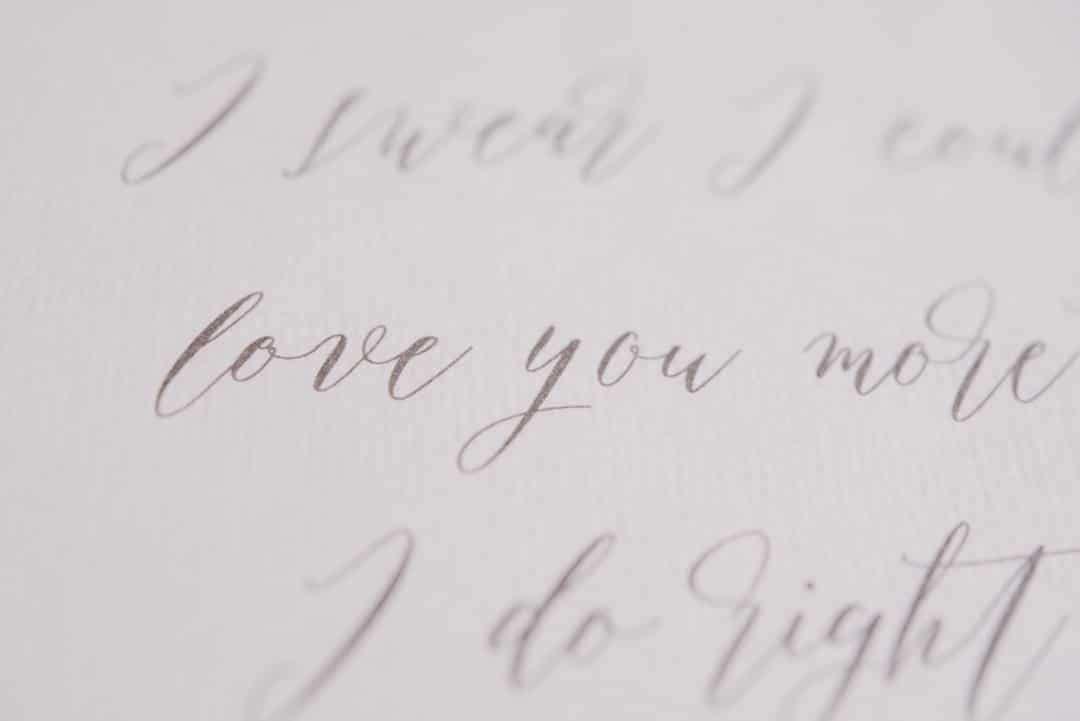 I swear I coul
love you more
I do right